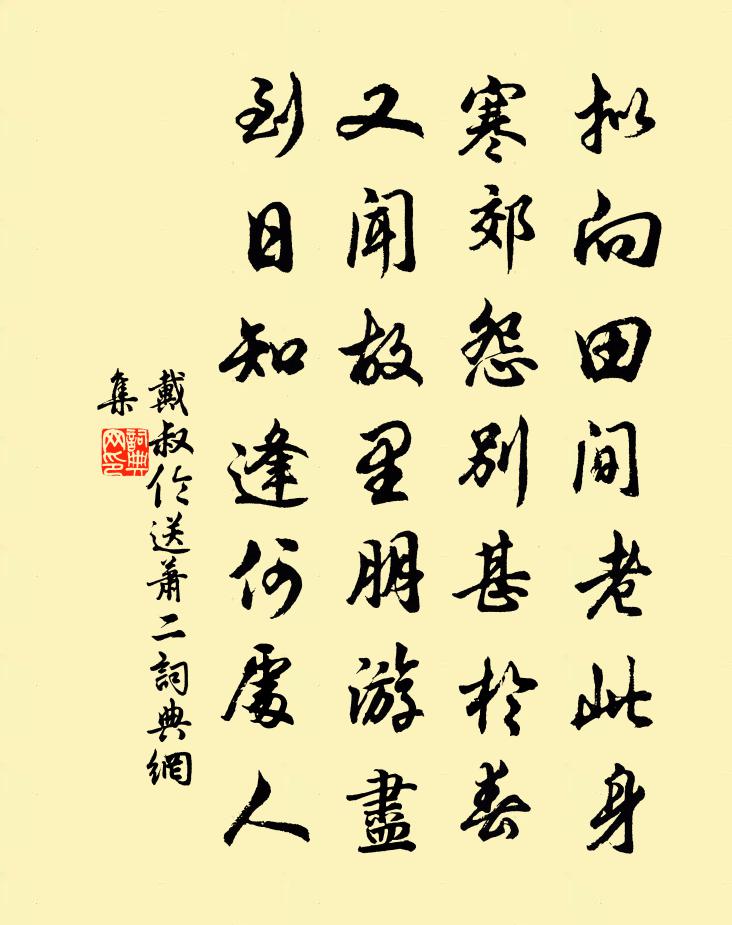 拟向田间老此身
寒郊怨别甚於春
又闻故里朋游盡
到日知逢何處人
戴叔伦送萧二詞典網
集
詞典
网印